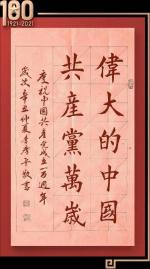 100
1921-2021
偉大的中國
共産黨萬歲
慶祝中國共產党成立一百週年
歲次辛丑仲夏李彦平敬書